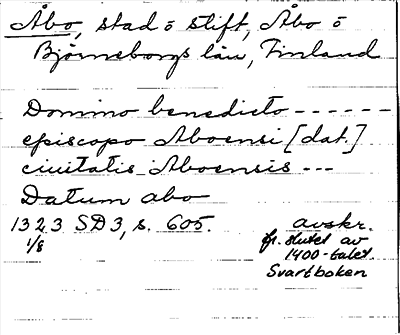 Åbo, stad o stift, Åbo o
Björneborgs län, Finland
Domino benedicto ------
episcopo Aboensi [dat.]
ciuitatis Aboensis ---
Datum abo
1323 SD3, s. 605. avskr.
1/8 fr. slutet av
1400-talet.
Svartboken